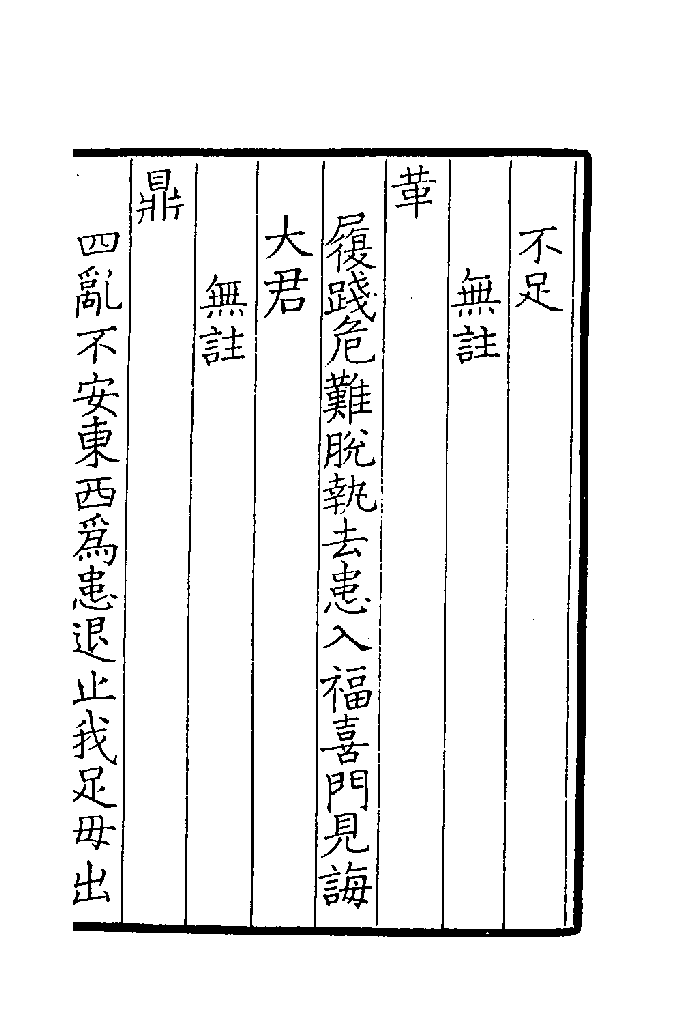 不足
無註
革
履踐危難脫執去患入福喜門見誨
大君
無註
鼎
四亂不安東西為患退止我足毋出